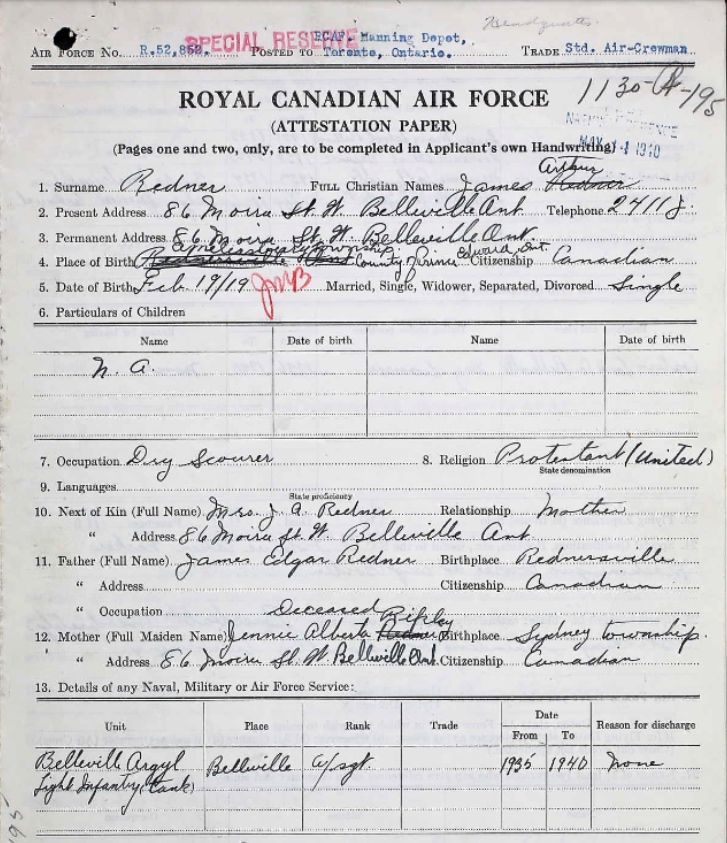 Headquarters.
SPECIAL RESERVE
AIR FORCE No. R.52,858. POSTED TO RCAF. Manning Depot, Toronto, Ontario. TRADE Std. Air-Crewman
ROYAL CANADIAN AIR FORCE
1130-A-195
(ATTESTATION PAPER)
(Pages one and two, only, are to be completed in Applicant's own Handwriting)
MAY 1940
1. Surname Redner FULL Christian Names James Arthur Redner
2. Present Address 86 Moira St. W. Belleville Ont Telephone 2411J
3. Permanent Address 86 Moira St. W. Belleville Ont
4. Place of Birth Rednersville Ont Ameliasburg Township County of Prince Edward, Ont. Citizenship Canadian
5. Date of Birth Feb 19/19 Married, Single, Widower, Separated, Divorced Single
6. Particulars of Children
Name Date of birth Name Date of birth
N. A.
7. Occupation Dry Scourer 8. Religion Protestant (United)
State denomination
9. Languages
State proficiency
10. Next of Kin (Full Name) Mrs. J. A. Redner Relationship Mother
" Address 86 Moira St. W. Belleville Ont.
11. Father (Full Name) James Edgar Redner Birthplace Rednersville
" Address Citizenship Canadian
" Occupation Deceased
12. Mother (Full Maiden Name) Jennie Alberta Redner Rifley Birthplace Sydney township.
" Address 86 Moira St. W. Belleville Ont. Citizenship Canadian
13. Details of any Naval, Military or Air Force Service:
Unit Place Rank Trade Date From To Reason for discharge
Belleville Argyl Light Infantry (Tank) Belleville a/sgt. 1935 1940 None
195